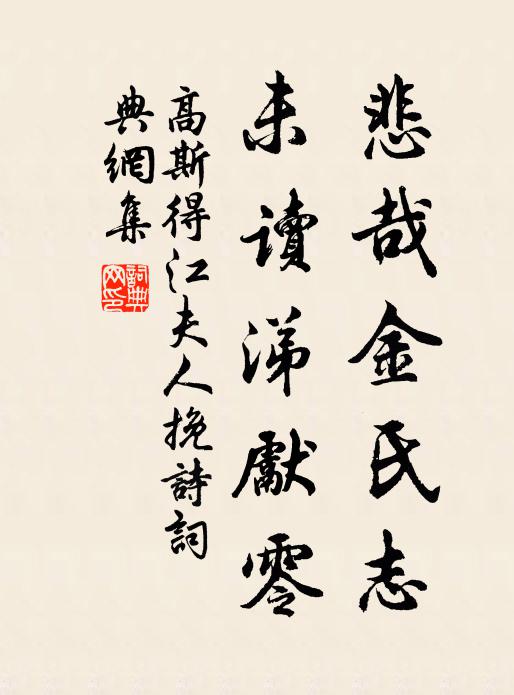 悲哉金氏志
未讀涕獻零
高斯得江夫人挽詩詞
典網集
詞典網印